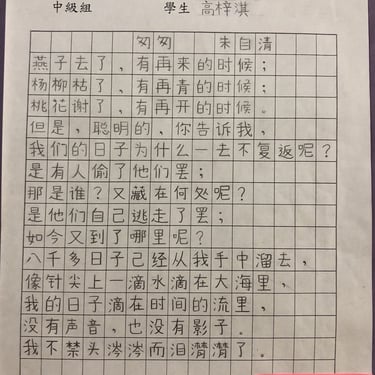 中級組 學生 高梓淇
匆匆 朱自清
燕子去了，有再来的时候；
杨柳枯了，有再青的时候；
桃花谢了，有再开的时候。
但是，聪明的，你告诉我，
我们的日子为什么一去不复返呢？
是有人偷了他们罢；
那是谁？又藏在何处呢？
是他们自己逃走了罢；
如今又到了哪里呢？
八千多日子已经从我手中溜去，
像针尖上一滴水滴在大海里，
我的日子滴在时间的流里，
没有声音，也没有影子。
我不禁头涔涔而泪潸潸了。